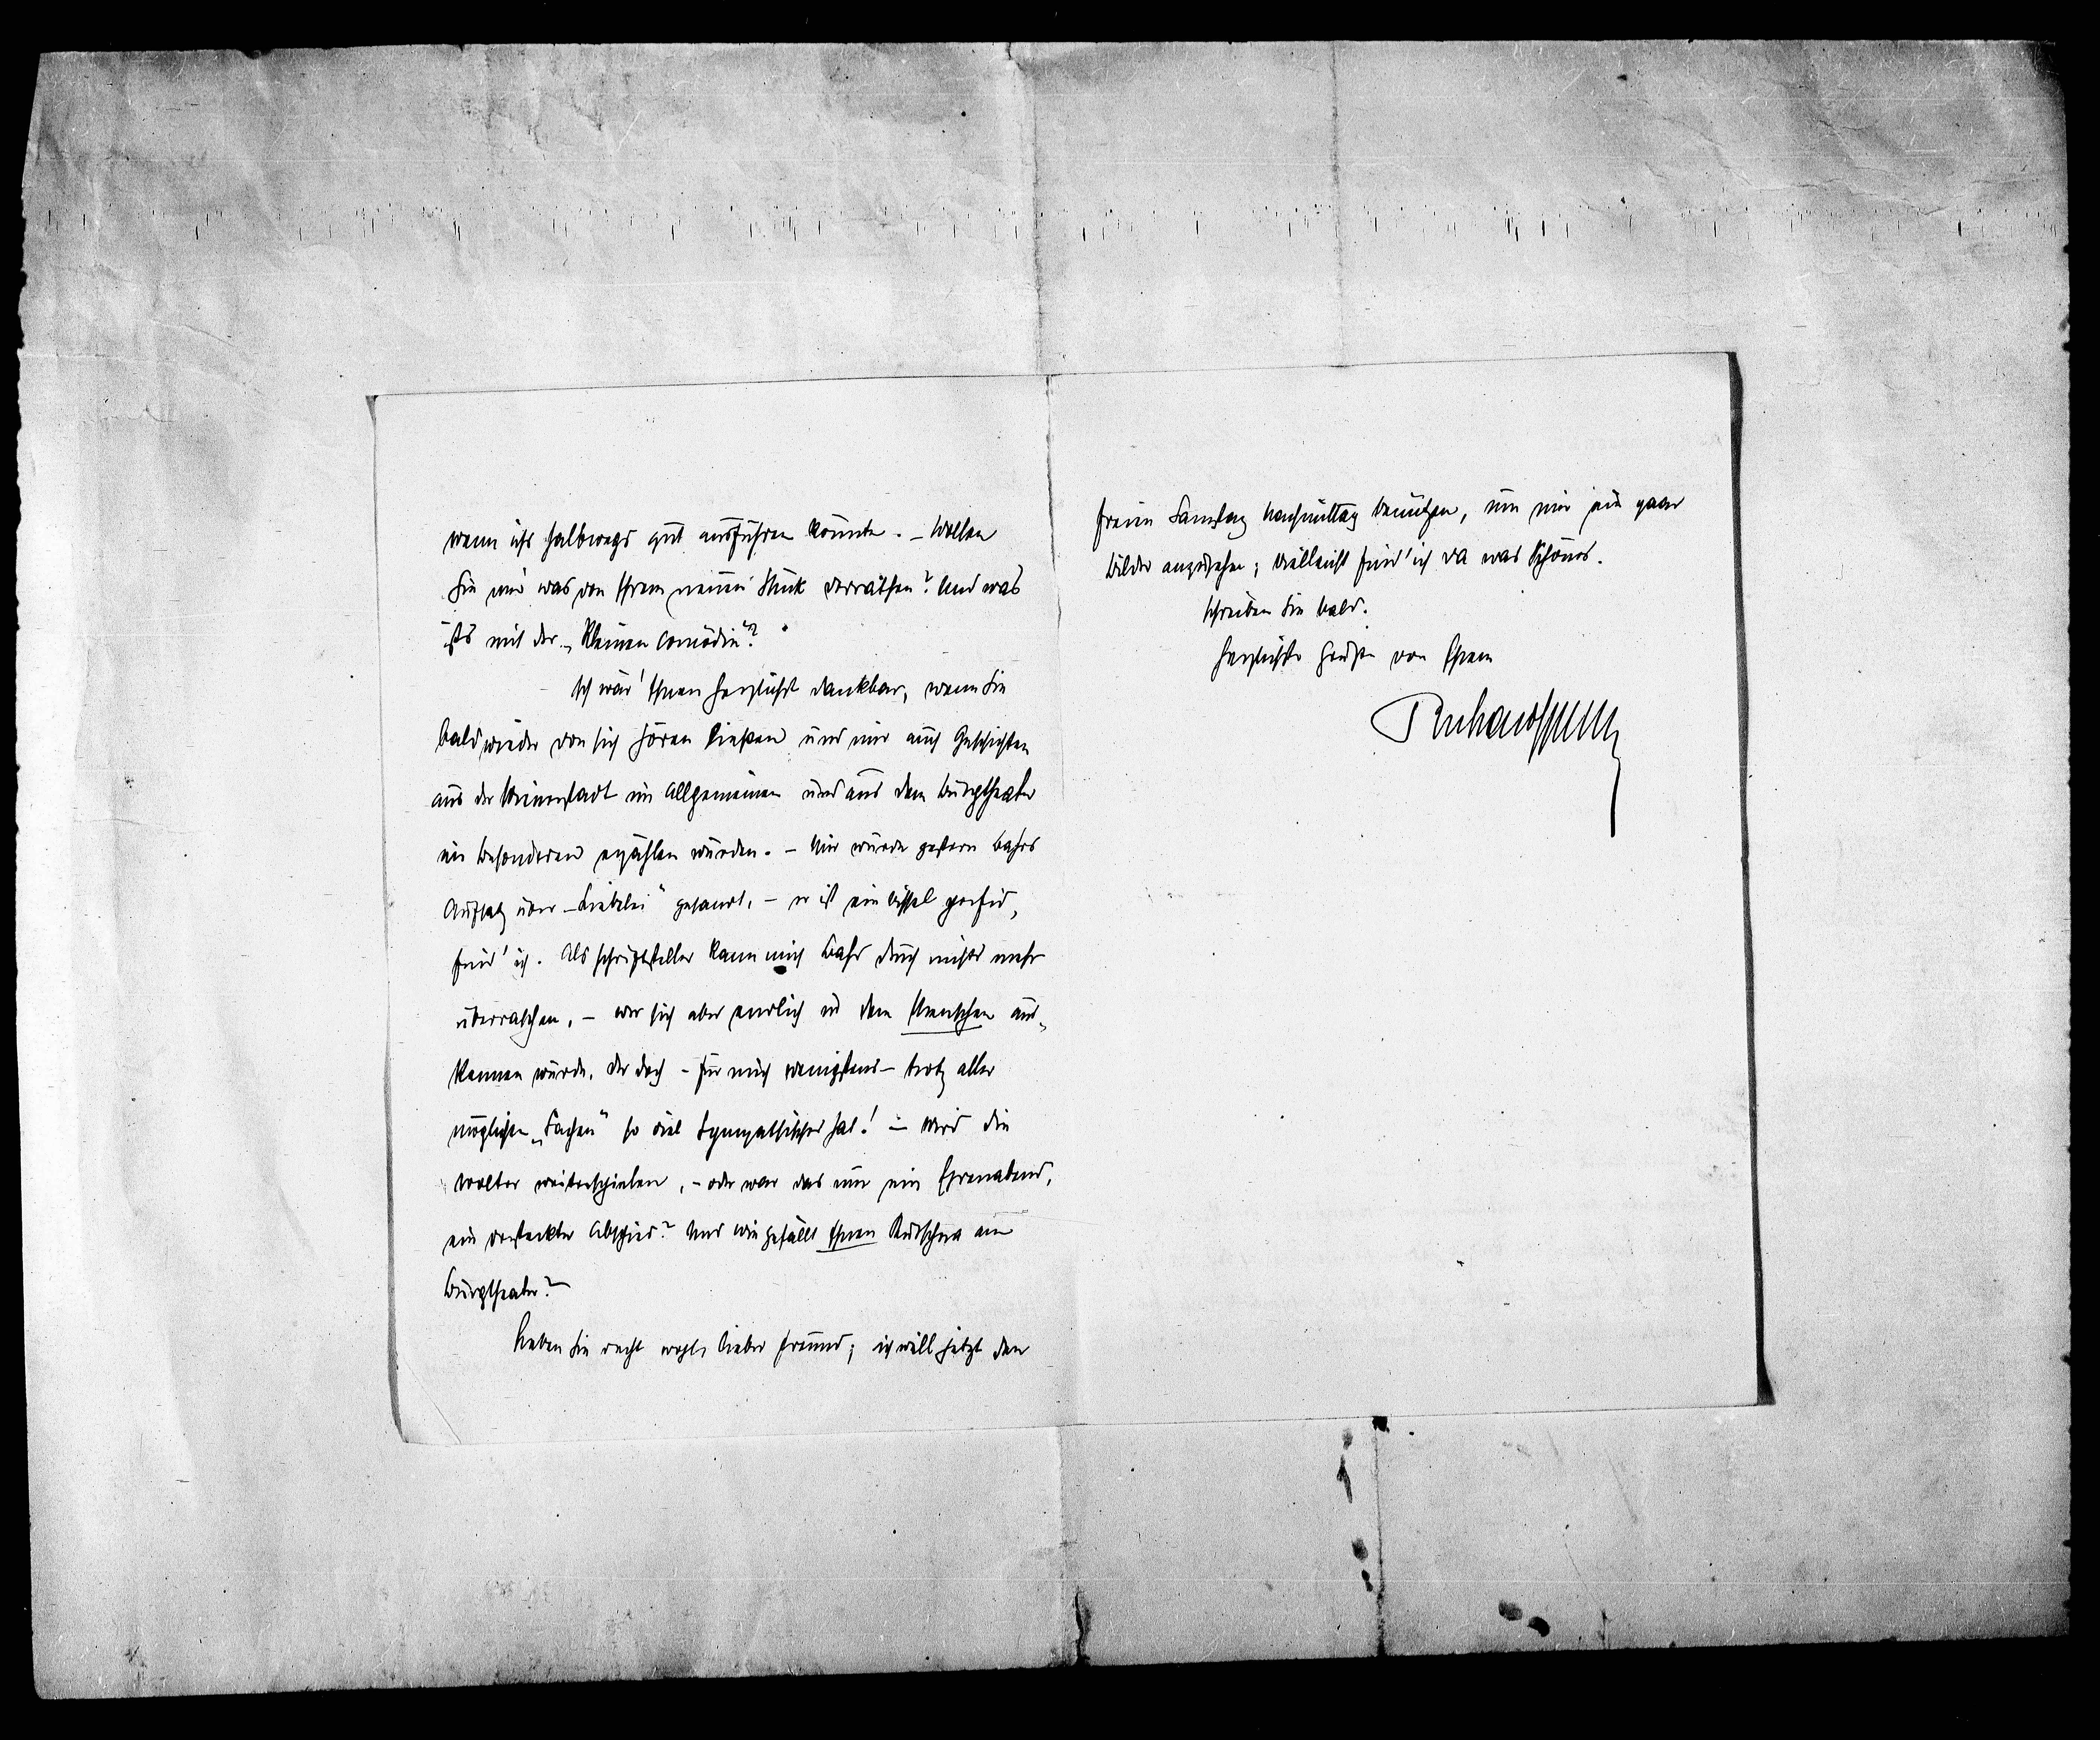 wenn ichs halbwegs gut ausführen könnte. – Wollen
Sie mir was von Ihrem neuen Stück verrathen? Und was
ists mit der „Kleinen Comödie“?
Ich wär' Ihnen herzlichst dankbar, wenn Sie
bald wieder von sich hören ließen und mir auch Geschichten
aus der Wienerstadt im Allgemeinen und aus dem Burgtheater
im Besonderen erzählen würden. – Mir wurde gestern Bahrs
Aufsatz über „Liebelei“ gesandt, – er ist ein bissel perfid,
find' ich. Als Schriftsteller kann mich Bahr durch nichts mehr
überraschen, – wer sich aber endlich in dem Menschen aus-
kennen würde, der doch – für mich wenigstens – trotz aller
möglichen „Sachen“ so viel Sympathisches hat! – Wird die
Wolter weiterspielen, – oder war das nur ein Ehrenabend,
ein versteckter Abschied? Und wie gefällt Ihnen Kutschera am
Burgtheater?
Leben Sie recht wohl, lieber Freund; ich will jetzt den
freien Samstag Nachmittag benützen, um mir ein paar
Bilder anzusehen; vielleicht find' ich da was Schönes.
Schreiben Sie bald.
Herzlichste Grüße von Ihrem